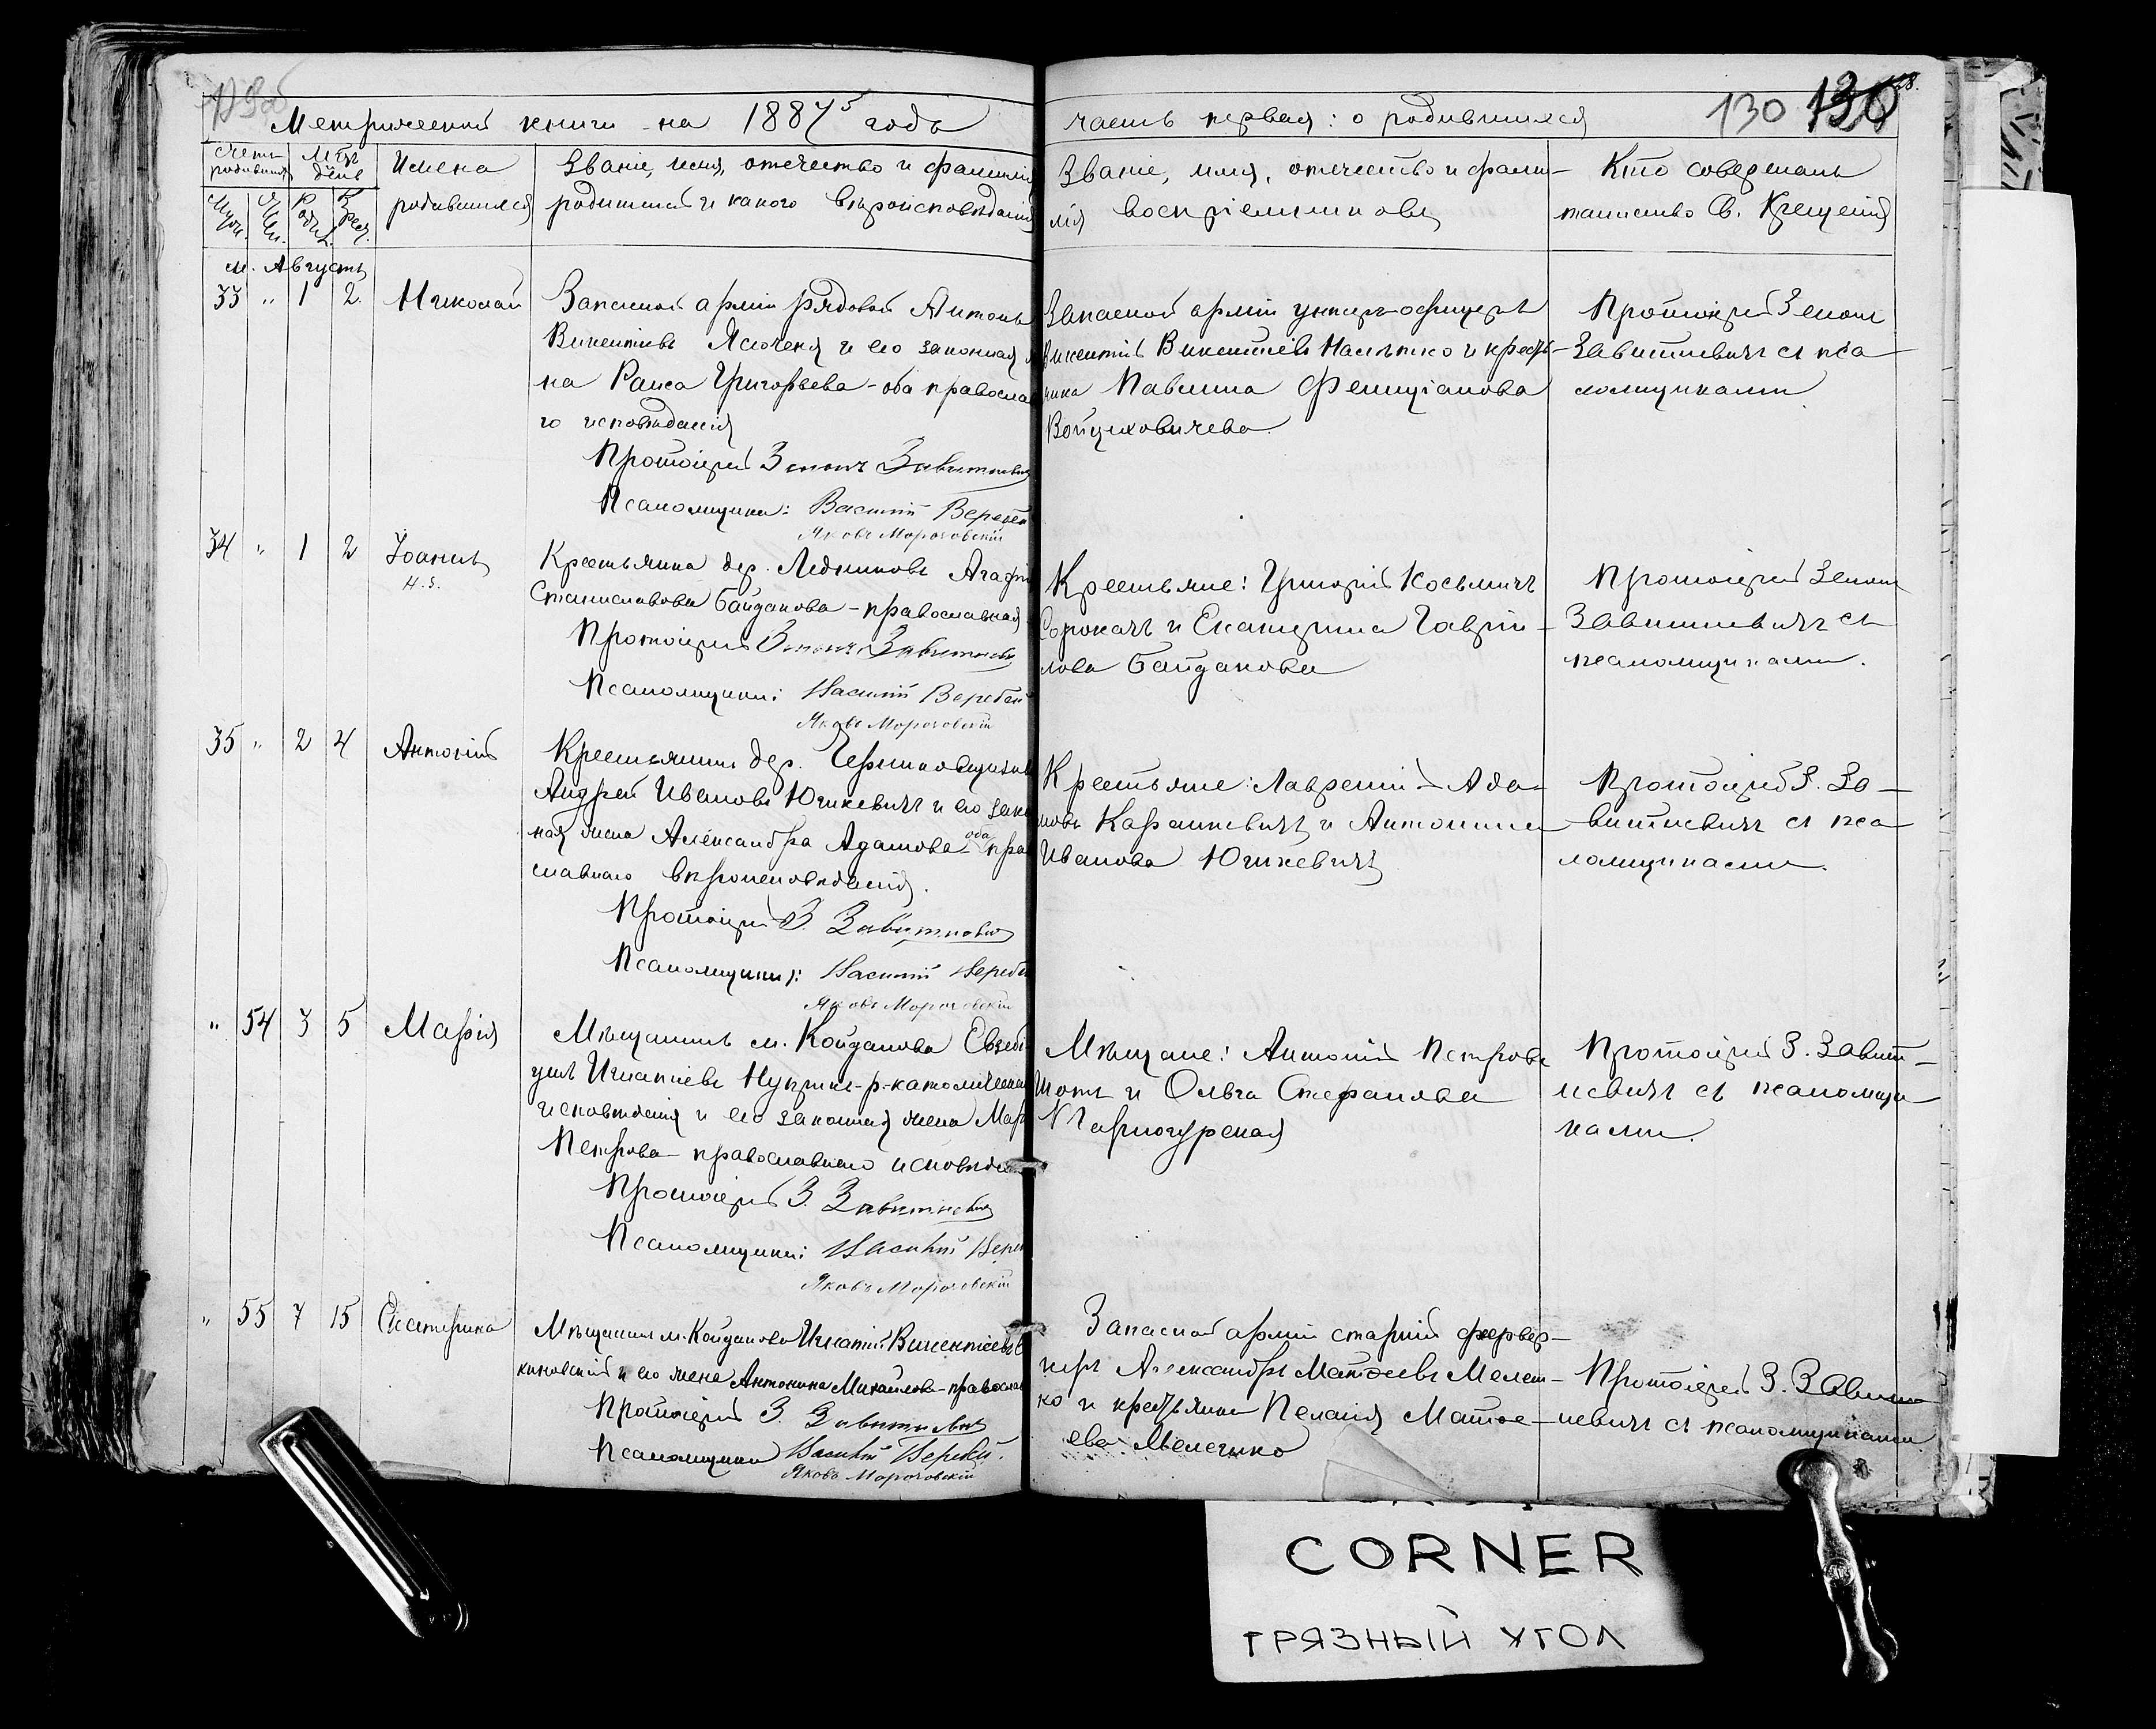 Метрической книги на 1887 года
часть первая: о родившихся
130
Имена
родившихся
Званіе, имя, отчество и фамилія
родителей и какого вѣроисповѣданія
Званіе, имя, отчество и фами-
лія воспріемниковъ
Кто совершалъ
таинство Св. Крещенія
м. Августъ
33 " 1 2 Николай
Запасной арміи рядовой Антонъ
Викентіевъ и его законная
на Раиса Григорьева - оба православ
го исповѣданія
Протоіерей Зенонъ Завитневич
Псаломщики: Василій Веребей
Яковъ Мороговскій
Запасной арміи унтеръ-офицеръ
Викентій Викентіевъ и кресть-
янка Павлина Фелиціанова
Войцеховичева
Протоіерей Зенонъ
Завитневичъ съ пса-
ломщиками
34 " 1 2 Іоаннъ
Н.З.
Крестьянка дер. Ледниковъ Агафія
Станиславова Байдакова - православная
Протоіерей Зенонъ Завитневи
Псаломщики: Василій Веребей
Яковъ Мороговскій
Крестьяне: Григорій Косьмичъ
Сорокачъ и Екатерина Гаврі-
лова Байдакова
Протоіерей Зенонъ
Завитневичъ съ
псаломщиками.
35 " 2 4 Антоній
Крестьянинъ дер.
Андрей Ивановъ Юшкевичъ и его закон
ная жена Александра Адамова оба пра
славнаго вѣроисповѣданія.
Протоіерей З. Завитневич
Псаломщики: Василій Веребей
Яковъ Мороговскій
Крестьяне: Лаврентій Ада-
мовъ Карашкевичъ и Антонина
Иванова Юшкевичъ
Протоіерей З. За-
витневичъ съ пса-
ломщиками.
" 54 3 5 Марія
Мѣщанинъ м. Койданова
Игнатіевъ р-католическаго
исповѣданія и его законная жена Мар
Петрова - православнаго исповѣдан
Протоіерей З. Завитневич
Псаломщики: Василій Вереб
Яковъ Мороговскій
Мѣщане: Антоній Петровъ
и Ольга Стефанова
Чарногурская
Протоіерей З. Завит-
невичъ съ псаломщи-
ками.
" 55 7 15 Екатерина
Мѣщанинъ м. Койданова Игнатій Викентіевъ
киновскій и его жена Антонина Михайлова - православ
Протоіерей З. Завитневич
Псаломщики Василій Веребей.
Яковъ Мороговскій
Запасной арміи старшій фейервер-
керъ Александръ Матѳеевъ Мелеш-
ко и крестьянка Пелагія Матѳе-
ева Мелешко
Протоіерей З. Завит-
невичъ съ псаломщиками
CORNER
ГРЯЗНЫЙ УГОЛ